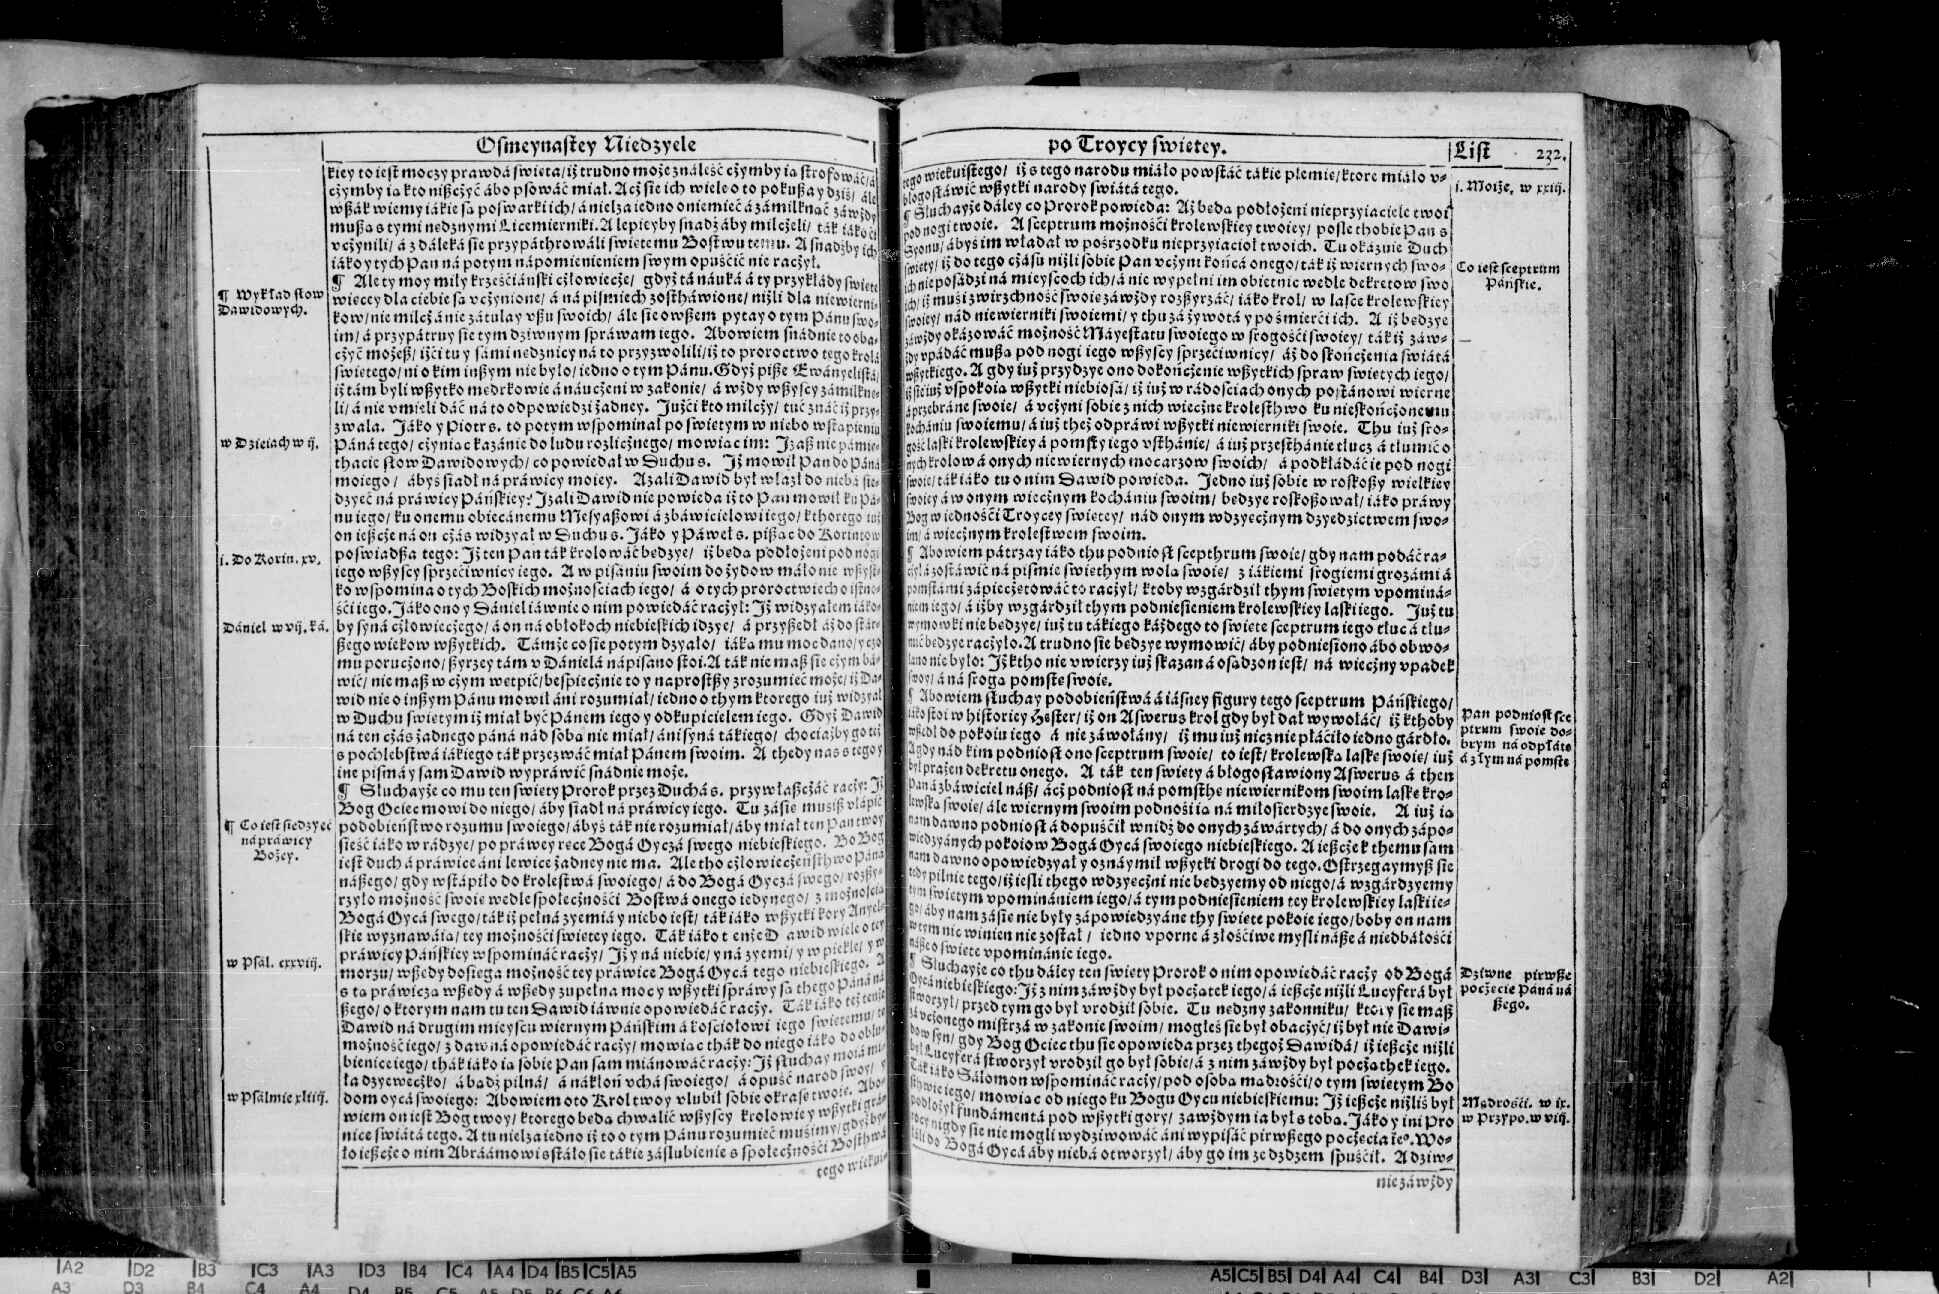 Osmeynastey Niedzyele
kiey to iest moczy prawdá swieta/ iż trudno może ználeść cżymby ia strofowáć/ á
cżymby ia kto nißcżyć ábo psowáć miał. Acż sie ich wiele o to pokußa y dziś/ ále
wßák wiemy iákie są poswarki ich/ á nielza iedno oniemieć á zámilknać záwżdy
mußa s tymi nedznymi Licemierniki. A lepieyby snadz áby milcżeli/ ták iáko ci
vcżynili/ á z dáleká sie przypáthrowáli swietemu Bostwu temu. A snadźby ich
iáko y tych Pan ná potym nápomienieniem swym opuścić nie racżył.
¶ Ale ty moy miły krześćiáński cżłowiecże/ gdyż tá náuká á ty przykłády swiete
wiecey dla ciebie są vcżynione/ á ná pismiech zosthawione/ niżli dla niewierni-
kow/ nie milcż ánie zátulay vßu swoich/ ále sie owßem pytay o tym Pánu swo-
im/ á przypátruy sie tym dziwnym spráwam iego. Abowiem snádnie to oba-
cżyć możeß/ iżći tu y sámi nedznicy ná to przyzwolili/ iż to proroctwo tego krolá
swietego/ ni o kim inßym nie było/ iedno o tym Pánu. Gdyż piße Ewányelistá/
iż tám byli wßytko medrkowie á náucżeni w zakonie/ á wżdy wßyscy zámilkne-
li/ á nie vmieli dáć ná to odpowiedzi żadney. Jużći kto milcży/ tuć znáć iż przy-
zwala. Jáko y Piotr s. to potym wspominał po swietym w niebo wstąpieniu
Páná tego/ cżyniac kazánie do ludu rozlicżnego/ mowiac im: Jzaß nie pámie-
thacie słow Dawidowych/ co powiedał w Duchu s. Jż mowił Pan do Páná
moiego/ ábyś siadł ná práwicy moiey. Azali Dawid był wlazł do niebá sie-
dzyeć ná práwicy Páńskiey? Jzali Dawid nie powieda iż to Pan mowił ku Pá-
nu iego/ ku onemu obiecánemu Mesyaßowi á zbáwicielowi iego/ kthorego iuż
on ießcże ná on cżás widzyał w Duchu s. Jáko y Páweł s. pißac do Korintow
poswiadßa tego: Jż ten Pan ták krolowáć bedzye/ iż beda podłożeni pod nogi
iego wßyscy sprzeciwnicy iego. A w pisániu swoim do żydow máło nie wßyst-
ko wspomina o tych Boskich możnościach iego/ á o tych proroctwiech o istno-
śći iego. Jáko ono y Dániel iáwnie o nim powiedáć racżył: Jż widzyałem iáko-
by syná cżłowiecżego/ á on ná obłokoch niebieskich idzye/ á przyßedł áż do stár-
ßego wiekow wßytkich. Támże co sie potym dzyało/ iáka mu moc dano/ y czo
mu porucżono/ ßyrzey tám v Dánielá nápisano stoi. A ták nie maß sie cżym bá-
wić/ nie maß w cżym wetpić/ bespiecżnie to y naprostßy zrozumieć może/ iż Da-
wid nie o inßym Pánu mowił áni rozumiał/ iedno o thym ktorego iuż widzyał
w Duchu swietym iż miał być Pánem iego y odkupicielem iego. Gdyż Dawid
ná ten cżás żadnego páná nád soba nie miał/ áni syná tákiego/ chociażby go też
s pochlebstwá iákiego ták przezwáć miał Pánem swoim. A thedy nas s tego y
ine pismá y sam Dawid wypráwić snádnie może.
¶ Słuchayże co mu ten swiety Prorok przez Duchá s. przywłaßcżáć racży: Jż
Bog Ociec mowi do niego/ áby siadł ná práwicy iego. Tu zásie musiß vłápić
podobieństwo rozumu swoiego/ ábyś ták nie rozumiał/ áby miał ten Pan twoy
sieść iáko w rádzye/ po práwey rece Bogá Oyczá swego niebieskiego. Bo Bog
iest duch á práwice áni lewice żadney nie ma. Ale tho cżłowiecżeństhwo Páná
náßego/ gdy wstąpiło do krolestwá swoiego/ á do Bogá Oyczá swego/ rozßy-
rzyło możność swoie wedle społecżnośći Bostwá onego iedynego/ z możnością
Bogá Oycá swego/ ták iż pełná zyemiá y niebo iest/ ták iáko wßytki kory Anyel-
skie wyznawáia/ tey możnośći swietey iego. Ták iáko t enże D awid wiele o tey
práwicy Páńskiey wspomináć racży/ Jż y ná niebie/ y ná zyemi/ y w piekle/ y w
morzu/ wßedy dosiega możność tey práwice Bogá Oycá tego niebieskiego. A
s ta práwicza wßedy á wßedy zupełna moc y wßytki spráwy są thego Páná ná
ßego/ o ktorym nam tu ten Dawid iáwnie opowiedáć racży. Ták iáko też tenże
Dawid ná drugim mieyscu wiernym Páńskim á kościołowi iego swietemu/ te
możność iego/ z dawná opowiedáć racży/ mowiac thák do niego iáko do oblu-
bienice iego/ thák iáko ia sobie Pan sam miánowáć racży: Jż słuchay moiá mi-
ła dzyewecżko/ á badź pilná/ á nákłoń vchá swoiego/ á opuść narod swoy/ y
dom oycá swoiego: Abowiem oto Krol twoy vlubił sobie okrase twoie. Abo-
wiem on iest Bog twoy/ ktorego beda chwalić wßyscy krolowie y wßytki grá-
nice swiátá tego. A tu nielza iedno iż to o tym Pánu rozumieć musimy/ gdyżby
ło ießcże o nim Abráámowi s stáło sie tákie záślubienie s społecżnośći Bosthwá
tego wiekui-
¶ Wykład słow
Dawidowych.
w Dzieiach w ij.
i. Do Korin. xv.
Dániel w vij. ká.
¶ Co iest siedzyeć
ná práwicy
Bożey.
w Psál. cxxviij.
w Psálmie xliiij.
po Troycy swietey.
List 232.
tego wiekuistego/ iż s tego narodu miáło powstáć tákie plemie/ ktore miáło v-
błogosłáwić wßytki narody swiátá tego.
¶ Słuchayże dáley co Prorok powieda: Aż beda podłożeni nieprzyiaciele twoi
pod nogi twoie. A sceptrum możnośći krolewskiey twoiey/ posle thobie Pan s
Syonu/ ábyś im władał w pośrzodku nieprzyiacioł twoich. Tu okázuie Duch
swiety/ iż do tego cżásu niżli sobie Pan vcżyni końcá onego/ ták iż wiernych swo-
ich nie posádzi ná mieyscoch ich/ á nie wypełni im obietnic wedle dekretow swo
ich/ iż musi zwirzchność swoie záwżdy rozßyrzáć/ iáko krol/ w lasce krolewskiey
swoiey/ nád niewierniki swoiemi/ y thu zá żywotá y po śmierći ich. A iż bedzye
záwżdy okázowáć możność Máyestatu swoiego w srogośći swoiey/ ták iż záw-
żdy vpádáć mußa pod nogi iego wßyscy sprzećiwnicy/ áż do skońcżenia swiátá
wßytkiego. A gdy iuż przydzye ono dokońcżenie wßytkich spraw swietych iego/
iż sie iuż vspokoia wßytki niebiosá/ iż iuż w rádościach onych postánowi wierne
á przebráne swoie/ á vcżyni sobie z nich wiecżne krolesthwo ku nieskońcżonemu
kochániu swoiemu/ á iuż theż odpráwi wßytki niewierniki swoie. Thu iuż sro-
gość laski krolewskiey á pomsty iego vsthánie/ á iuż przesthánie tłucz á tłumić o
nych krolow á onych niewiernych mocarzow swoich/ á podkłádáć ie pod nogi
swoie/ ták iáko tu o nim Dawid powieda. Jedno iuż sobie w roskoßy wielkiey
swoiey á w onym wiecżnym kochániu swoim/ bedzye roskoßował/ iáko práwy
Bog w iednośći Troycey swietey/ nád onym wdzyecżnym dzyedzictwem swo-
im/ á wiecżnym krolestwem swoim.
¶ Abowiem pátrzay iáko thu podniosł scepthrum swoie/ gdy nam podáć ra-
cżył á zostáwić ná pismie swiethym wola swoie/ z iákiemi srogiemi grozámi á
pomstámi zápiecżetowáć to racżył/ ktoby wzgárdził thym swietym vpominá-
niem iego/ á iżby wzgárdził thym podniesieniem krolewskiey laski iego. Już tu
wymowki nie bedzye/ iuż tu tákiego każdego to swiete sceptrum iego tłuc á tłu-
mić bedzye racżyło. A trudno sie bedzye wymowić/ áby podniesiono ábo obwo-
łano nie było: Jż ktho nie vwierzy iuż skazan á osądzon iest/ ná wiecżny vpadek
swoy/ á ná sroga pomste swoie.
¶ Abowiem słuchay podobieństwá á iásney figury tego sceptrum Páńskiego/
iáko stoi w historiey Hester/ iż on Aswerus krol gdy był dał wywołáć/ iż kthoby
wßedł do pokoiu iego á nie záwołány/ iż mu iuż nicz nie płáciło iedno gárdło.
A gdy nád kim podniosł ono sceptrum swoie/ to iest/ krolewska laske swoie/ iuż
był prażen dekretu onego. A ták ten swiety á błogosłáwiony Aswerus á then
Pan á zbáwiciel náß/ ácż podniosł ná pomsthe niewiernikom swoim laske kro-
lewska swoie/ ále wiernym swoim podnośi ia ná miłosierdzye swoie. A iuż ia
nam dawno podniosł á dopuśćił wniść do onych záwártych/ á do onych zápo-
wiedzyánych pokoiow Bogá Oycá swoiego niebieskiego. A ießcże k themu sam
nam dawno opowiedzyał y oznáymił wßytki drogi do tego. Ostrzegaymyß sie
tedy pilnie tego/ iż iesli thego wdzyecżni nie bedzyemy od niego/ á wzgárdzyemy
tym swietym vpominániem iego/ á tym podniesieniem tey krolewskiey laski ie-
go/ áby nam zásie nie były zápowiedzyáne thy swiete pokoie iego/ boby on nam
w tym nic winien nie został/ iedno vporne á złościwe mysli náße á niedbáłośći
náße o swiete vpominánie iego.
¶ Słuchayże co thu dáley ten swiety Prorok o nim opowiedáć racży od Bogá
Oycá niebieskiego: Jż z nim záwżdy był pocżatek iego/ á ießcże niżli Lucyferá był
stworzył/ przed tym go był vrodził sobie. Tu nedzny zakonniku/ ktory sie maß
zá vcżonego mistrzá w zakonie swoim/ mogłeś sie był obacżyć/ iż był nie Dawi-
dow syn/ gdy Bog Ociec thu sie opowieda przez thegoż Dawidá/ iż ießcże niżli
był Lucyferá stworzył vrodził go był sobie/ á z nim záwżdy był pocżathek iego.
Ták iáko Sálomon wspomináć racży/ pod osoba mądrośći/ o tym swietym Bo
sthwie iego/ mowiac od niego ku Bogu Oycu niebieskiemu: Jż ießcże niżliś był
podłożył fundámentá pod wßytki gory/ zawżdym ia był s toba. Jáko y ini Pro
rocy nigdy sie nie mogli wydziwowáć áni wypisáć pirwßego pocżecia ieº. Wo-
łáli do Bogá Oycá áby niebá otworzył/ áby go im ze dzdzem spuśćił. A dziw-
nie záwżdy
i. Moiże. w xxiij.
Co iest sceptrum
Páńskie.
Pan podniosł sce
ptrum swoie do-
brym ná odpłáte
á złym ná pomste
Dziwne pirwße
pocżecie Páná ná
ßego.
Mądrośći. w ix.
w Przypo. w viij.
A2 D2 B3 C3 A3 D3 B4 C4 A4 D4 B5 C5 A5
A5 C5 B5 D4 A4 C4 B4 D3 A3 C3 B3 D2 A2
A3 D3 B4 C4 A4 D4 B5 C5 A5 D5 B6 C6 A6